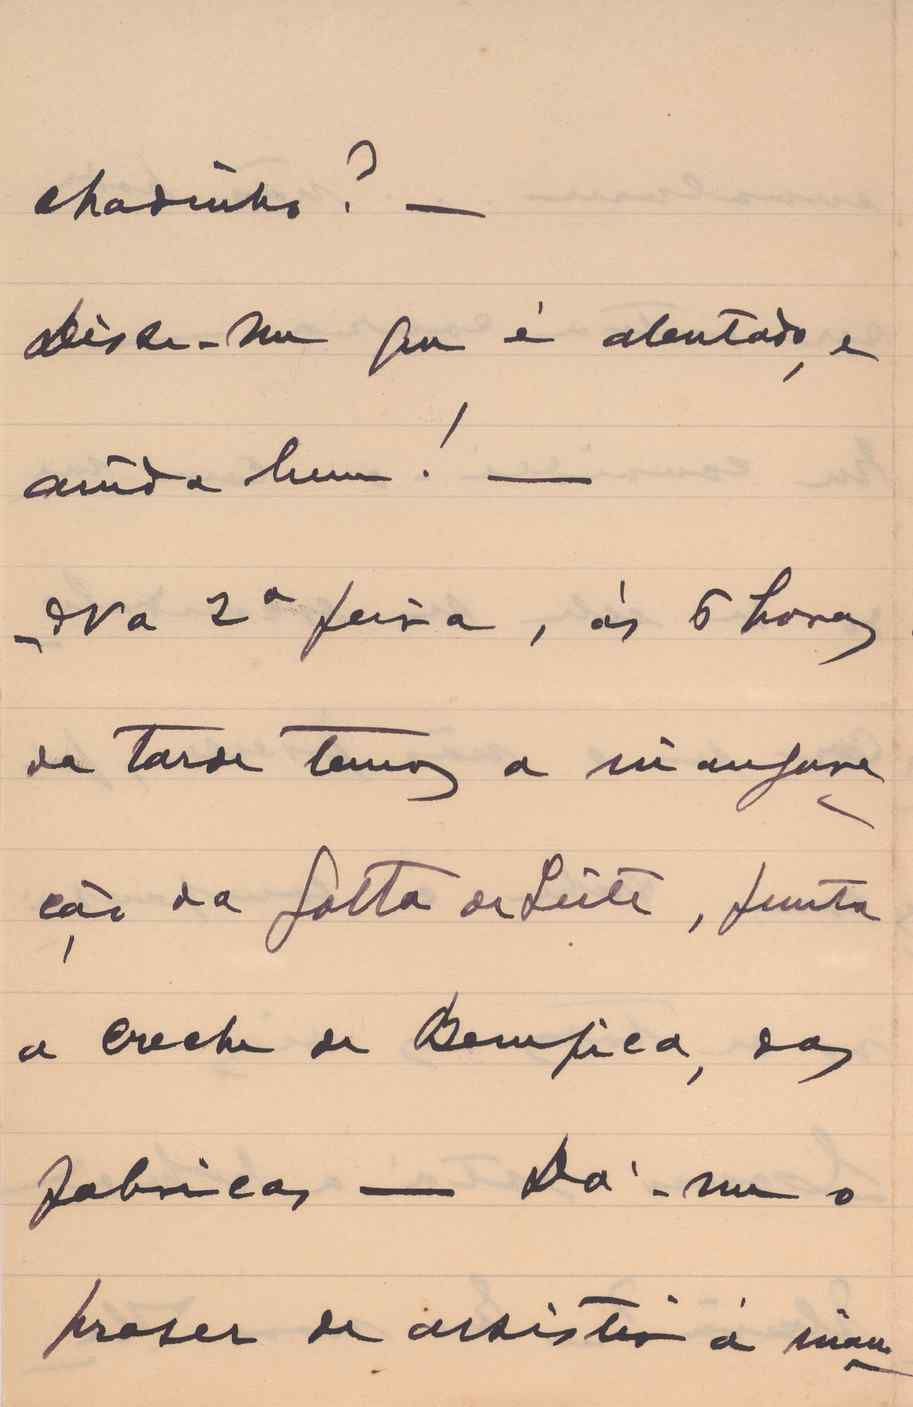 chadinho? —
Disse-me que é alentado, e
ainda bem! —
_Na 2ª feira, ás 5 horas
da tarde temos a inaugura
ção da Gotta de Leite, junta
a Creche de Bemfica, das
fabricas — Dá-me o
praser de assistir á inau